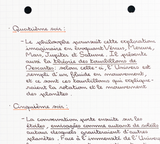 - Quatrième soir :
- Le philosophe poursuit cette exploration
imaginaire en évoquant Vénus, Mercure,
Mars, Jupiter et Saturne. Il présente
aussi la théorie des tourbillons de
Descartes : selon celle-ci, l'Univers est
rempli d'un fluide en mouvement,
et ce sont ces tourbillons qui expliquent
la rotation et le mouvement
des planètes.
- Cinquième soir :
- La conversation porte ensuite sur les
étoiles, envisagées comme autant de soleils
autour desquels graviteraient d'autres
planètes. Face à l'immensité de l'Univers